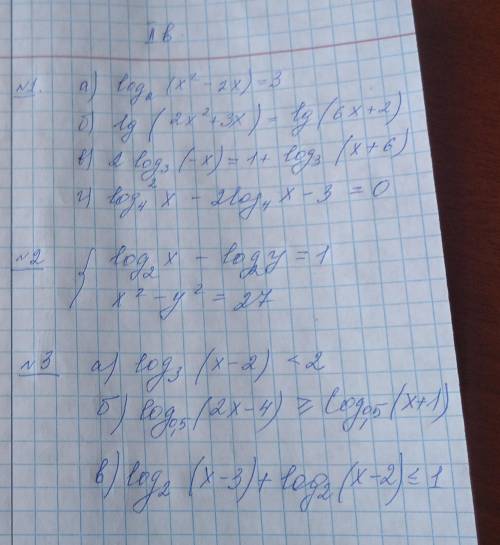 II в
№1. а) log₂ (x² - 2x) = 3
б) lg (2x² + 3x) = lg (6x + 2)
в) 2 log₃ (-x) = 1 + log₃ (x + 6)
г) log₄² x - 2 log₄ x - 3 = 0
№2 { log₂ x - log₂ y = 1
x² - y² = 27
№3 а) log₃ (x - 2) < 2
б) log₀,₅ (2x - 4) ≥ log₀,₅ (x + 1)
в) log₂ (x - 3) + log₂ (x - 2) ≤ 1